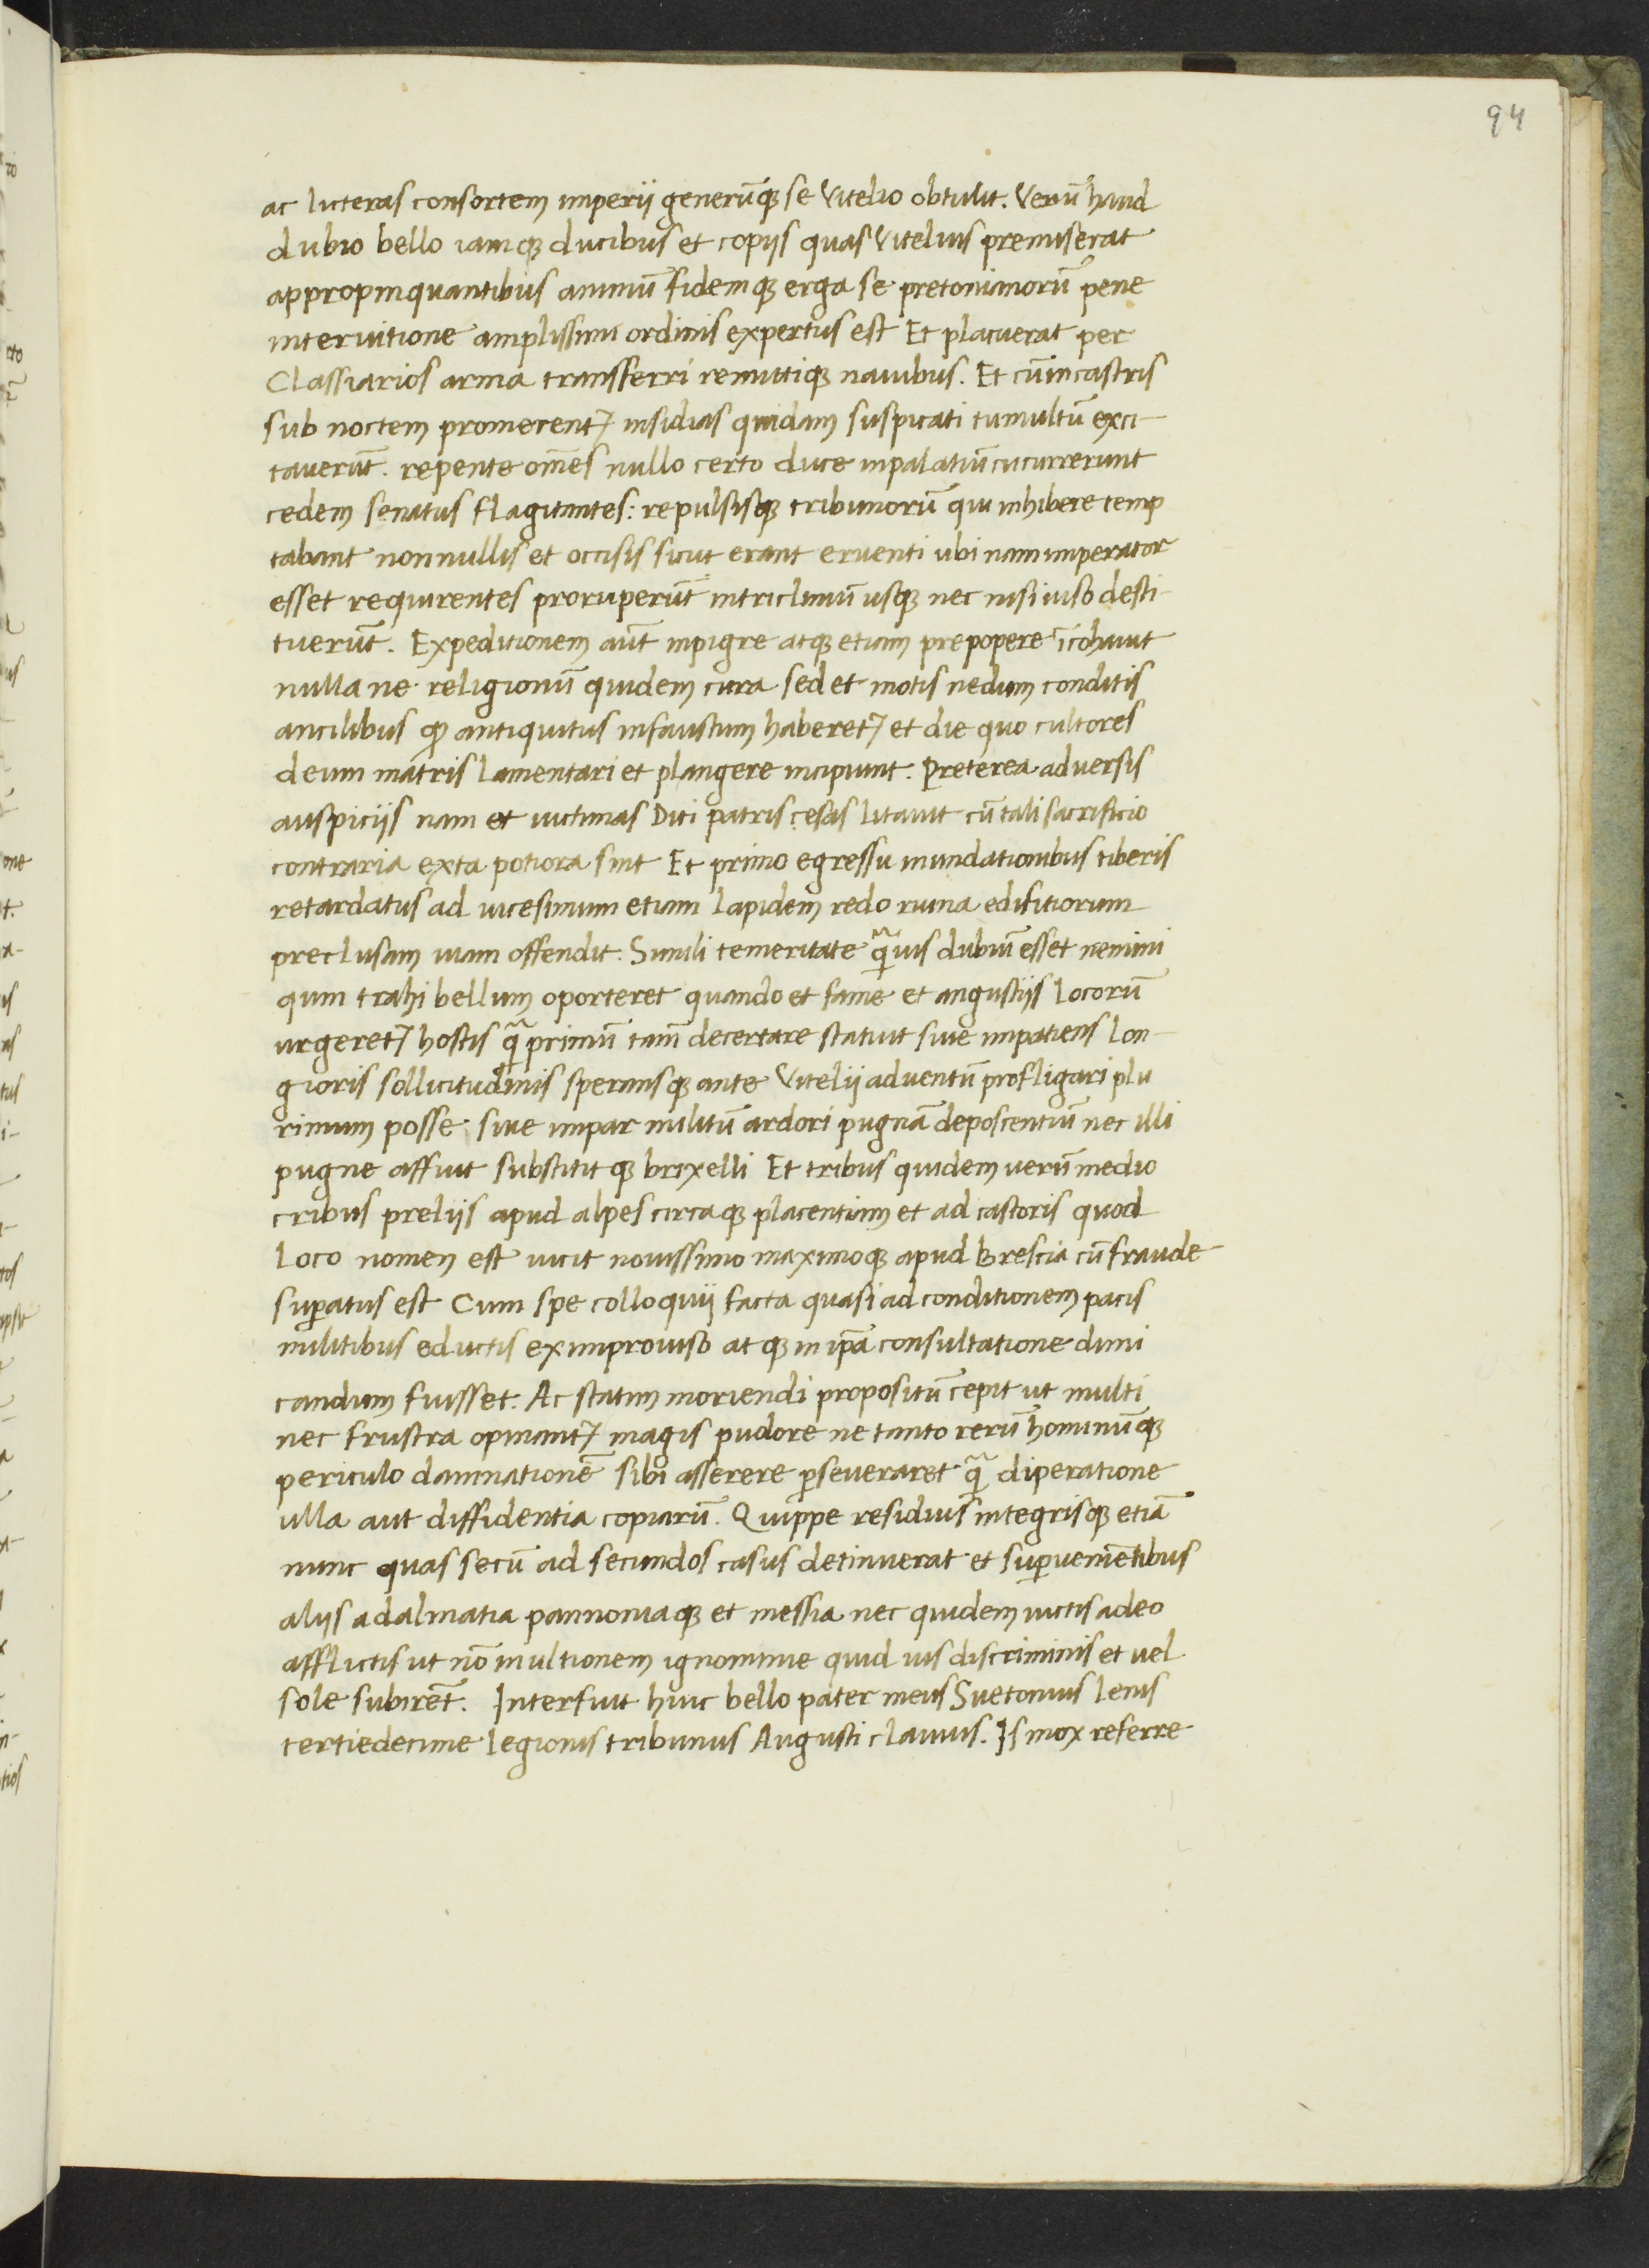 94
ac licteras consortem imperij generūq; se Vitelio obtulit. Verū haud
dubio bello iamq; ducibus et copijs quas Vitelius premiserat
appropinquantibus animū fidemq; erga se pretonianorū pene
interuitione amplissimi ordinis expertus est Et placuerat per
Classiarios arma transferri remittiq; nauibus. Et cū in castris
sub noctem promerent insidias quidam suspicati tumultū exci-
tauerūt. repente om̄es nullo certo duce in palatiū cucurrerunt
cedem senatus flagitantes: repulsisq; tribunorū qui inhibere temp
tabant nonnullis et occisis sicut erant eruenti ubi nam imperator
esset requirentes proruperūt in tricliniū usq; nec nisi uiso desti-
tuerūt. Expeditionem aūt inpigre atq; etiam prepopere īcohauit
nulla ne religionū quidem cura sed et motis nedum conditis
ancilibus qđ antiquitus infaustum haberet et die quo cultores
deum matris lamentari et plangere incipiunt. Preterea aduersis
auspicijs nam et uictimas Diti patris cesas litauit cū tali sacrificio
contraria exta potiora sint Et primo egressu inundationibus tiberis
retardatus ad uicesimum etiam lapidem redo ruina edifitiorum
preclusam uiam offendit. Simili temeritate q̄uis dubiū esset nemini
quin trahi bellum oporteret quando et fame et angustijs locorū
urgeret hostis q̄ primū tam̄ decertare statuit siue impatiens lon-
gioris sollicitudinis speransq; ante Vitelij aduentū profligari plu
rimum posse siue impar militū ardori pugnā deposcentiū nec illi
pugne affuit substititq; brixelli Et tribus quidem uerū medio
cribus prelijs apud alpes circaq; placentiam et ad castoris quod
loco nomen est uicit nouissimo maximoq; apud Brescia cū fraude
sup̄atus est Cum spe colloquij facta quasi ad conditionem pacis
militibus eductis ex improuiso atq; in ip̄a consultatione dimi
candum fuisset. Ac statim moriendi propositū cepit ut multi
nec frustra opinant magis pudore ne tanto rerū hominūq;
periculo damnationē sibi asserere p̄seueraret q̄ diperatione
ulla aut diffidentia copiarū. Quippe residuis integrisq; etiā
nunc quas secū ad secundos casus detinuerat et sup̄uenientibus
alijs a dalmatia pannoniaq; et messia nec quidem uictis adeo
afflictis ut nō in ultionem ignominie quid uis discriminis et uel
sole subirēt. Interfuit huic bello pater meus Suetonius lenis
tertiedecime legionis tribunus Augusti clauius. Is mox referre